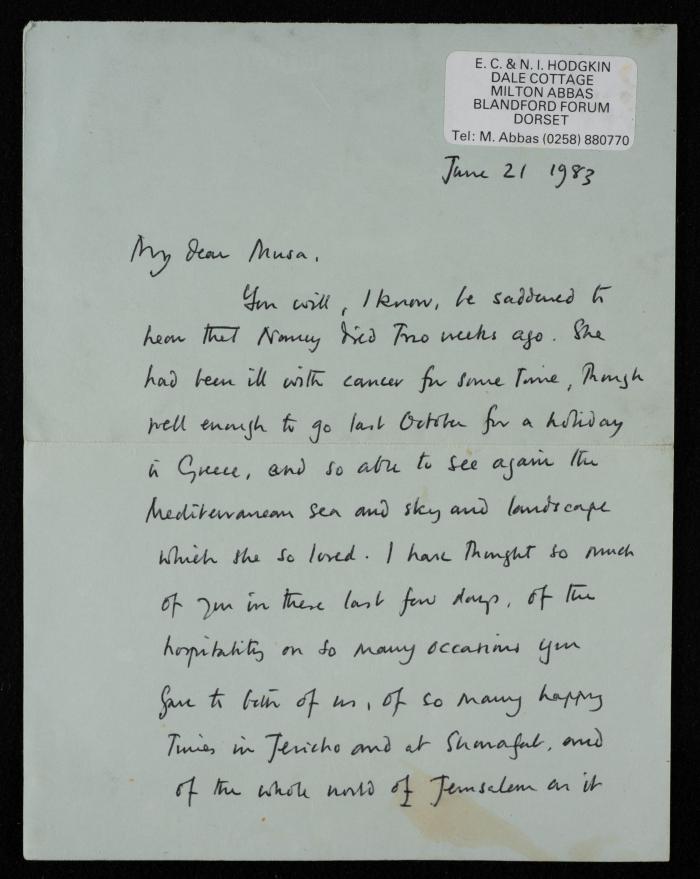 E. C. & N. I. HODGKIN
DALE COTTAGE
MILTON ABBAS
BLANDFORD FORUM
DORSET
Tel: M. Abbas (0258) 880770
June 21 1983
My dear Musa,
You will, I know, be saddened to
hear that Nancy died two weeks ago. She
had been ill with cancer for some time, though
well enough to go last October for a holiday
in Greece, and so able to see again the
Mediterranean sea and sky and landscape
which she so loved. I have thought so much
of you in these last few days, of the
hospitality on so many occasions you
gave to both of us, of so many happy
times in Jericho and at Sharafat, and
of the whole world of Jerusalem as it